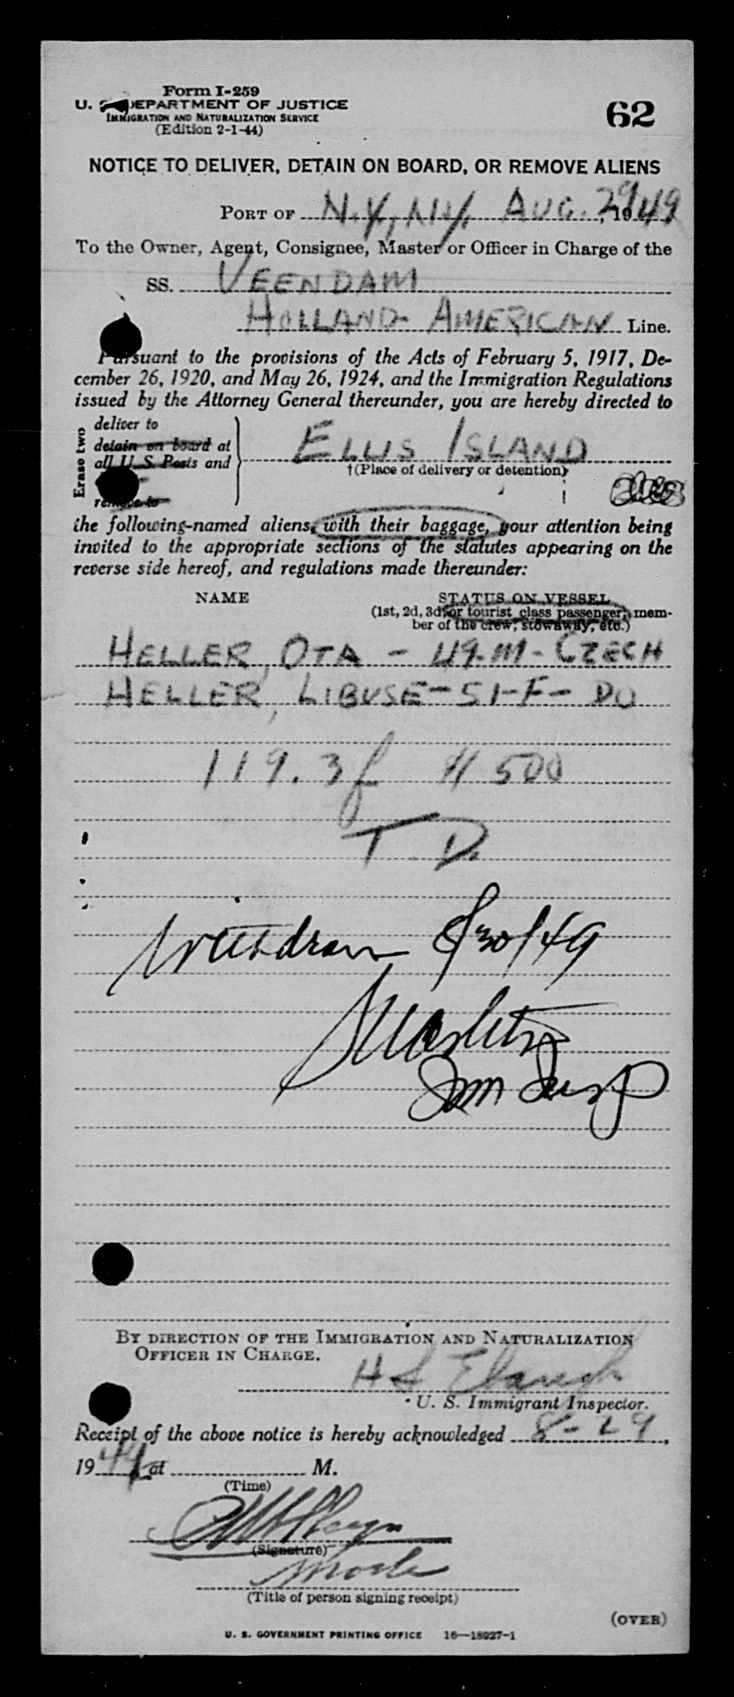 Form I-259
U. S. DEPARTMENT OF JUSTICE
IMMIGRATION AND NATURALIZATION SERVICE
(Edition 2-1-44)
62
NOTICE TO DELIVER, DETAIN ON BOARD, OR REMOVE ALIENS
PORT OF N.Y., N.Y. AUG. 29, 1949
To the Owner, Agent, Consignee, Master or Officer in Charge of the
SS. VEENDAM
HOLLAND-AMERICAN Line.
Pursuant to the provisions of the Acts of February 5, 1917, De-
cember 26, 1920, and May 26, 1924, and the Immigration Regulations
issued by the Attorney General thereunder, you are hereby directed to
Erase two
deliver to
detain on board at
all U. S. Ports and
remove to
ELLIS ISLAND
†(Place of delivery or detention)
the following-named aliens, with their baggage, your attention being
invited to the appropriate sections of the statutes appearing on the
reverse side hereof, and regulations made thereunder:
NAME
STATUS ON VESSEL
(1st, 2d, 3d, or tourist class passenger, mem-
ber of the crew, stowaway, etc.)
HELLER, OTA - 49-M-CZECH
HELLER, LIBUSE-51-F- DO
119.3f # 500
T. D.
Withdrawn 8/30/49
BY DIRECTION OF THE IMMIGRATION AND NATURALIZATION
OFFICER IN CHARGE.
U. S. Immigrant Inspector.
Receipt of the above notice is hereby acknowledged 8-29,
1949 at M.
(Time)
(Signature)
(Title of person signing receipt)
(OVER)
U. S. GOVERNMENT PRINTING OFFICE 16—18927-1